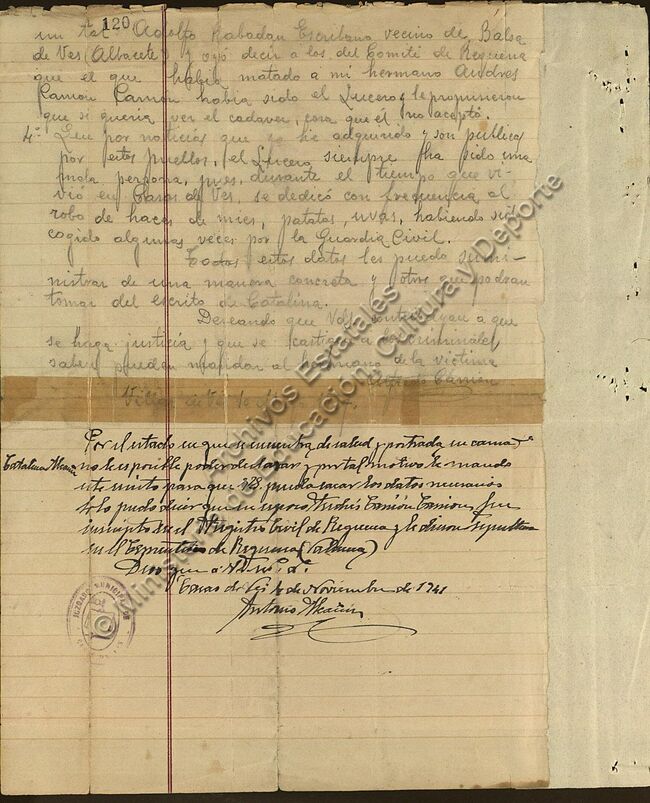 120
un tal Adolfo Rabadan Escribano vecino de Balsa
de Ves (Albacete) y oyó decir a los del Comité de Requena
que el que había matado a mi hermano Andres
había sido el Lucero y le propusieron
que si quería ver el cadaver, cosa que él no aceptó.
4º Que por noticias que yo he adquirido y son públicas
por estos pueblos, el Lucero siempre ha sido una
mala persona, pues, durante el tiempo que vi-
vió en Casas de Ves, se dedicó con frecuencia al
robo de haces de mies, patatas, uvas, habiendo sido
cogido algunas veces por la Guardia Civil.
Todos estos datos les puedo sumi-
nistrar de una manera concreta y otros que podran
tomar del escrito de Catalina.
Deseando que Vds contribuyan a que
se haga justicia y que se castigue a los criminales
saben pueden mandar al hermano de la victima
Carrión
Villa de Ves
Por el estado en que se encuentra de salud y postrada en cama
Catalina Alcañiz no le es posible poder declarar y por tal motivo le mando
este escrito para que VS. pueda sacar los datos necesarios
solo puedo decir que su esposo Andrés Carrión Carrión fue
inscripto en el Registro Civil de Requena y le dieron sepultura
en el Cementerio de Requena (Valencia)
Dios que a V.
Casas de Ves de Noviembre de 1941
Antonio Alcañiz
JUZGADO MUNICIPAL
© Ministerio de Educación, Cultura y Deporte
Archivos Estatales